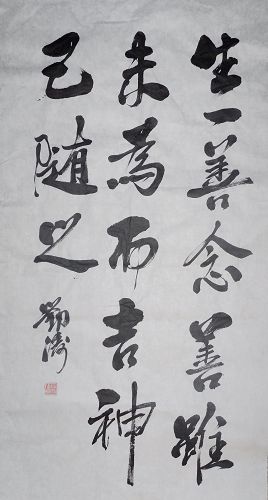 生一善念善雖
未為而吉神
已隨之
劉濤